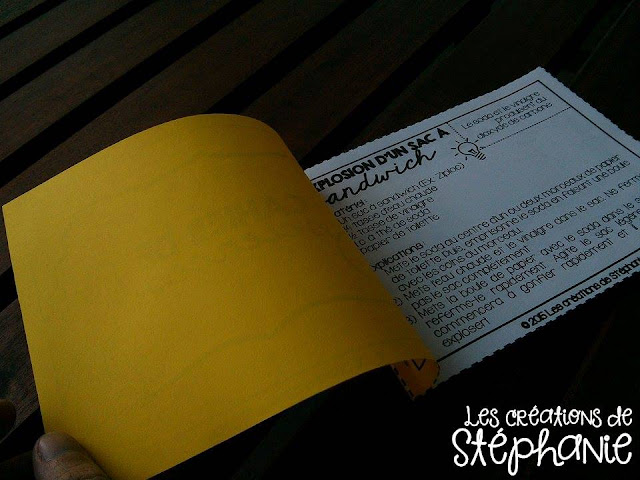 XPLOSION D'UN SAC À
andwich
Le soda et le vinaigre
produisent du
dioxyde de carbone
atériel
un sac à sandwich (Ex. Ziploc)
tasse d'eau chaude
tasse de vinaigre
à thé de soda
papier de toilette
xplications
Mets le soda au centre d'un ou deux morceaux de papier
de toilette. Puis, emprisonne le soda en faisant une boule
avec les coins du morceau.
2) Mets l'eau chaude et le vinaigre dans le sac. Ne ferme
pas le sac complètement.
3) Mets la boule de papier avec le soda dans le s
referme-le rapidement. Agite le sac légère
commencera à gonfler rapidement et f
exploser!
© 2015 Les créations de Stéphanie
Les créations de
Stéphanie